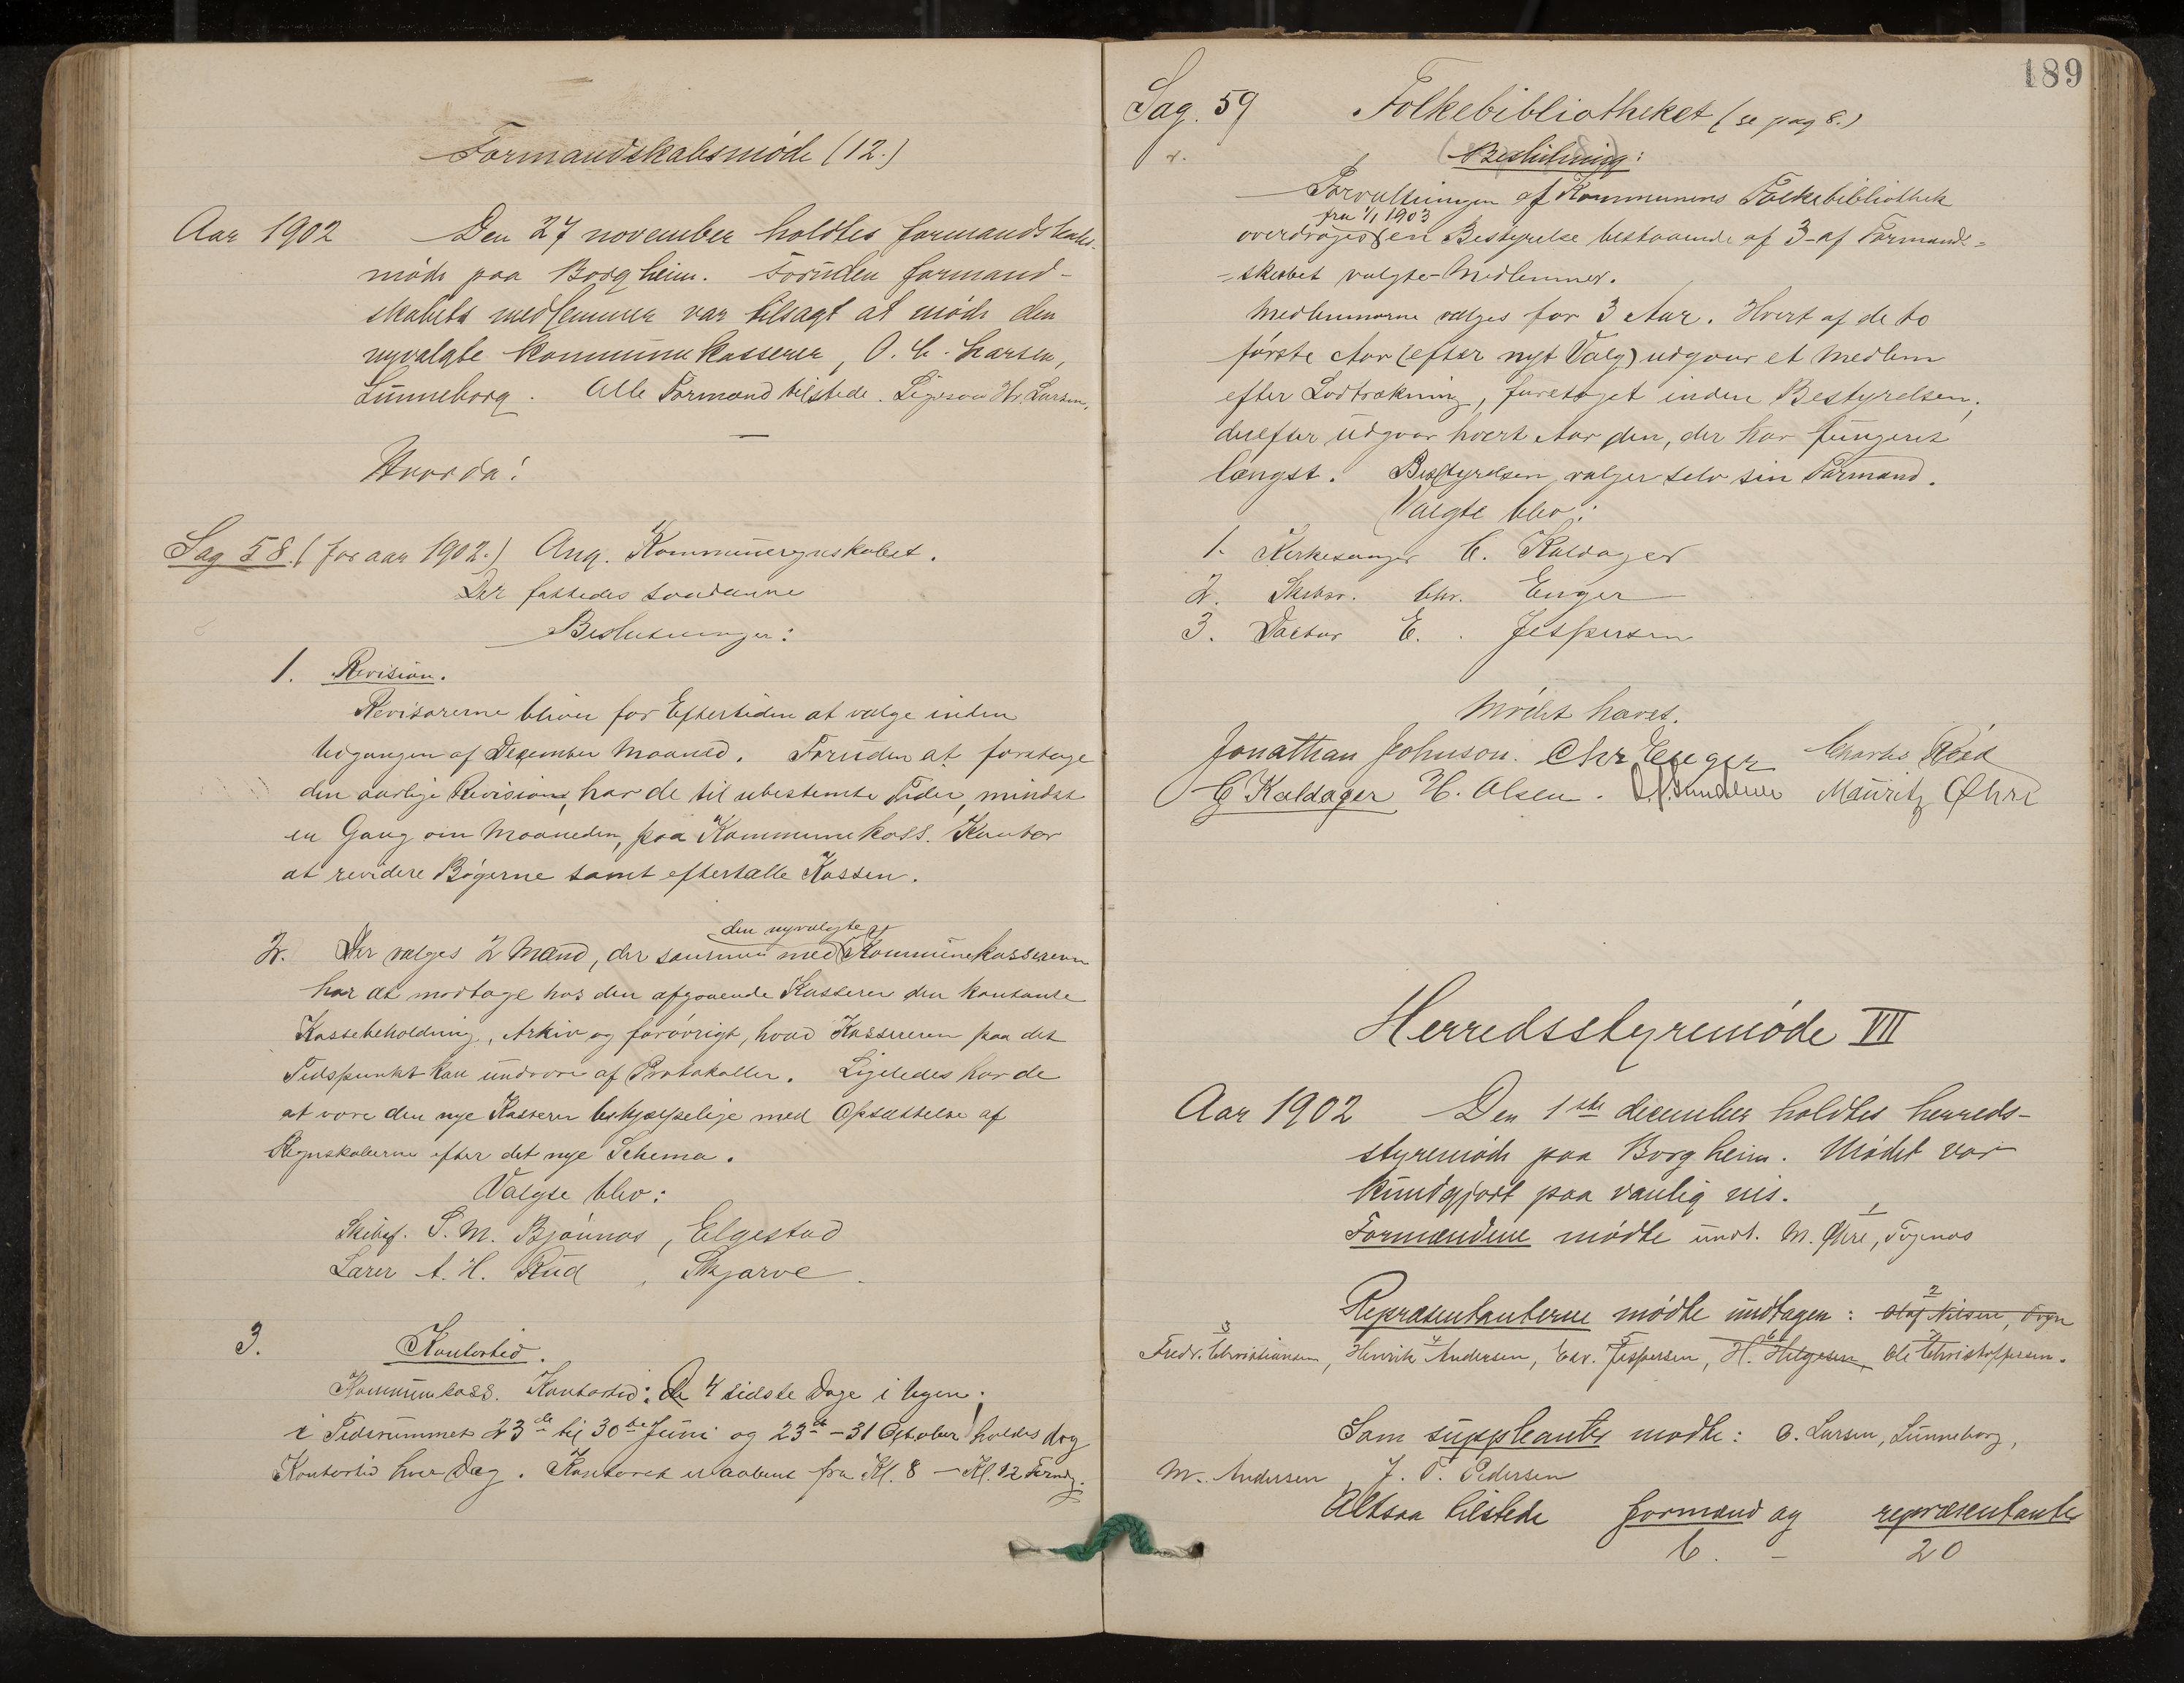 Formandskabsmöde (12.)
Aar 1902 Den 27 november holdtes formandskabs-
möde paa Borgheim. Foruden formand-
skabets medlemmer var tilsagt at möde den
nyvalgte kommunekasserer, O. C. Larsen,
Lunneborg. Alle Formænd tilstede. Ligesaa Hr. Larsen.
Hvorda:
Sag 58. (for aar 1902.) Ang. Kommuneregnskabet.
Der fattedes saadanne
Beslutninger:
1. Revision.
Revisorerne bliver for Eftertiden at vælge inden
Udgangen af December Maaned. Foruden at foretage
den aarlige Revision, har de til ubestemte Tider, mindst
en Gang om Maaneden, paa Kommunekass. Kontor
at revidere Bøgerne samt eftertælle Kassen.
den nyvalgte
2. Der vælges 2 Mænd, der sammen med Kommunekassereren
har at modtage hos den afgaaende Kasserer den kontante
Kassebeholdning, Arkiv og forøvrigt, hvad Kassereren paa det
Tidspunkt kan undvære af Protokoller. Ligeledes har de
at være den nye Kasserer behjælpelige med Opsættelse af
Regnskaberne efter det nye Schema.
Valgte blev:
Skibsf. S. M. Bjønnes, Elgestad
Lærer A. H. Rud, Skjærve.
3. Kontortid.
Kommunekass. Kontortid: De 4 sidste Dage i Ugen;
i Tidsrummet 23de til 30te Juni og 23de - 31 October holdes dog
Kontortid hver Dag. Kontoret er aabent fra Kl. 8 - Kl. 12 Formdg.
189
Sag. 59 Folkebibliotheket (se pag 8.)
Beslutning:
Forvaltningen af Kommunens Folkebibliothek
fra 1/1 1903
overdrages en Bestyrelse bestaaende af 3 - af Formand-
skabet valgte - Medlemmer.
Medlemmerne vælges for 3 Aar. Hvert af de to
første Aar (efter nyt Valg) udgaar et Medlem
efter Lodtrækning, foretaget inden Bestyrelsen;
derefter udgaar hvert Aar den, der har fungeret
længst. Bestyrelsen vælger selv sin Formand.
Valgte blev:
1. Kirkesanger C. Kaldager
2. Skibsr. Chr. Enger
3. Doctor E. Jespersen
Mödet hævet.
Jonathan Johnson. Chr Enger Charles Røed
C Kaldager H. Olsen. Mauritz Øhre
Herredsstyremöde VII
Aar 1902 Den 1ste december holdtes herreds-
styremöde paa Borgheim. Mödet var
kundgjort paa vanlig vis.
1
Formændene mödte undt. M. Øhre, Tojnæs
2
Repræsentanterne mödte undtagen: Olaf Nilsen,
3
Fredr. Christiansen, Henrik Andersen, Edv. Jespersen, H. Helgesen, Ole Christoffersen.
Som suppleanter mødte: O. Larsen, Lunneborg,
M. Andersen, J. P. Pedersen
Altsaa tilstede formænd og repræsentanter
6. - 20